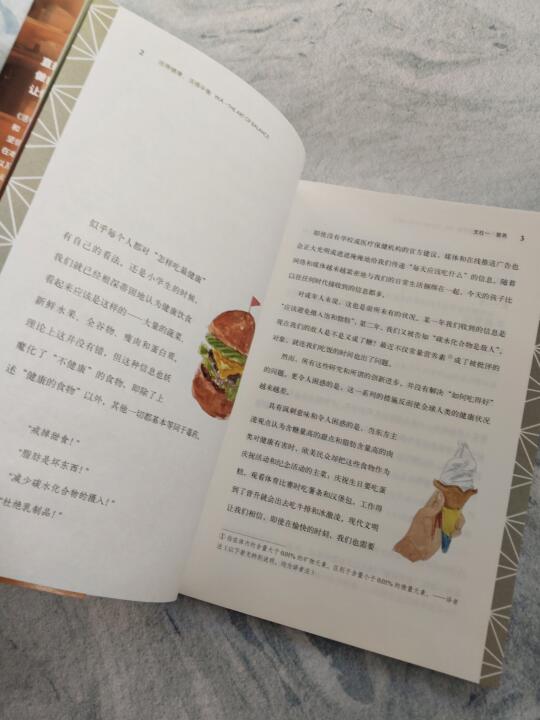 2
THE ART OF BALANCE
似乎每个人都对“怎样吃最健康”
有自己的看法。还是小学生的时候，
我们就已经根深蒂固地认为健康饮食
看起来应该是这样的——大量的蔬菜、
新鲜水果、全谷物、瘦肉和蛋白质。
理论上这并没有错，但这种信息也妖
魔化了“不健康”的食物，即除了上
述“健康的食物”以外，其他一切都基本等同于毒药。
“戒掉甜食！”
“脂肪是坏东西！”
“减少碳水化合物的摄入！”
“杜绝乳制品！”
支柱一：营养
3
即使没有学校或医疗保健机构的官方建议，媒体和在线推送广告也
会正大光明或遮遮掩掩地给我们传递“每天应该吃什么”的信息。随着
网络和媒体越来越紧密地与我们的日常生活捆绑在一起，今天的孩子比
以往任何时代接收到的信息都多。
对成年人来说，这也是前所未有的状况。某一年我们收到的信息是
“应该避免摄入饱和脂肪”，第二年，我们又被告知“碳水化合物是敌人”。
现在我们的敌人是不是又成了糖？最近不仅常量营养素①成了被批评的
对象，就连我们吃饭的时间也出了问题。
然而，所有这些研究和所谓的创新进步，并没有解决“如何吃得好”
的问题。更令人困惑的是，这一系列的措施反而使全球人类的健康状况
越来越差。
具有讽刺意味和令人困惑的是，当东方主
流观点认为含糖量高的甜点和脂肪含量高的肉
类对健康有害时，欧美民众却把这些食物作为
庆祝活动和纪念活动的主菜：庆祝生日要吃蛋
糕。观看体育比赛时吃薯条和汉堡包。工作得
到了晋升就会出去吃牛排和冰激凌。现代文明
让我们相信，即使在愉快的时刻，我们也需要
① 指在体内的含量大于0.01%的矿物元素，区别于含量小于0.01%的微量元素。——译者
注（以下若无特别说明，均为译者注）